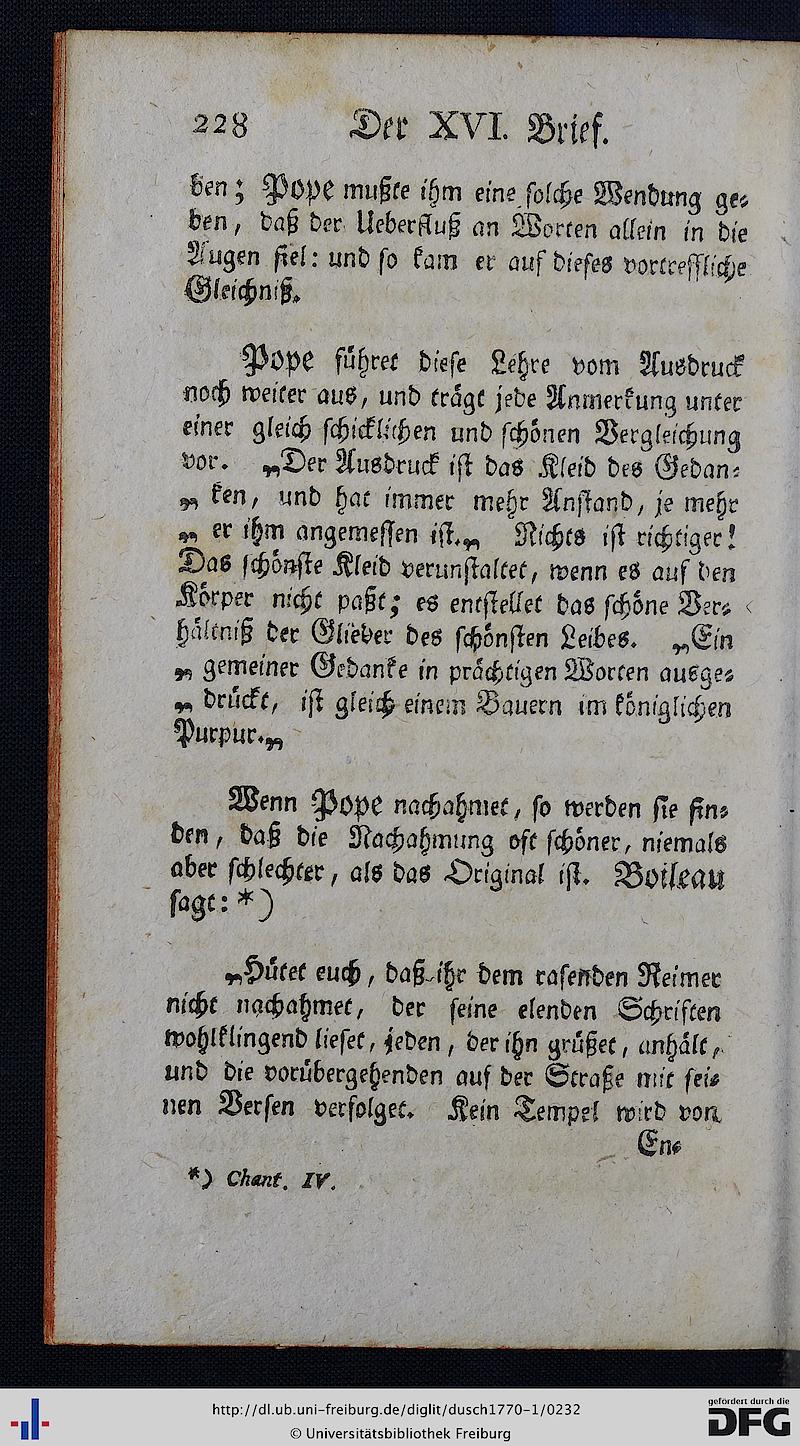 228 Der XVI. Brief.
ben; Pope mußte ihm eine solche Wendung ge-
ben, daß der Ueberfluß an Worten allein in die
Augen fiel: und so kam er auf dieses vortreffliche
Gleichniß.
Pope führet diese Lehre vom Ausdruck
noch weiter aus, und trägt jede Anmerkung unter
einer gleich schicklichen und schönen Vergleichung
vor. „Der Ausdruck ist das Kleid des Gedan-
„ ken, und hat immer mehr Anstand, je mehr
„ er ihm angemessen ist.„ Nichts ist richtiger!
Das schönste Kleid verunstaltet, wenn es auf den
Körper nicht paßt; es entstellet das schöne Ver-
hältniß der Glieder des schönsten Leibes. „Ein
„ gemeiner Gedanke in prächtigen Worten ausge-
„ drückt, ist gleich einem Bauern im königlichen
Purpur.„
Wenn Pope nachahmet, so werden sie fin-
den, daß die Nachahmung oft schöner, niemals
aber schlechter, als das Original ist. Boileau
sagt: *)
„Hütet euch, daß ihr dem rasenden Reimer
nicht nachahmet, der seine elenden Schriften
wohlklingend lieset, jeden, der ihn grüßet, anhält,
und die vorübergehenden auf der Straße mit sei-
nen Versen verfolget. Kein Tempel wird von
En-
*) Chant. IV.
http://dl.ub.uni-freiburg.de/diglit/dusch1770-1/0232
© Universitätsbibliothek Freiburg
gefördert durch die
DFG